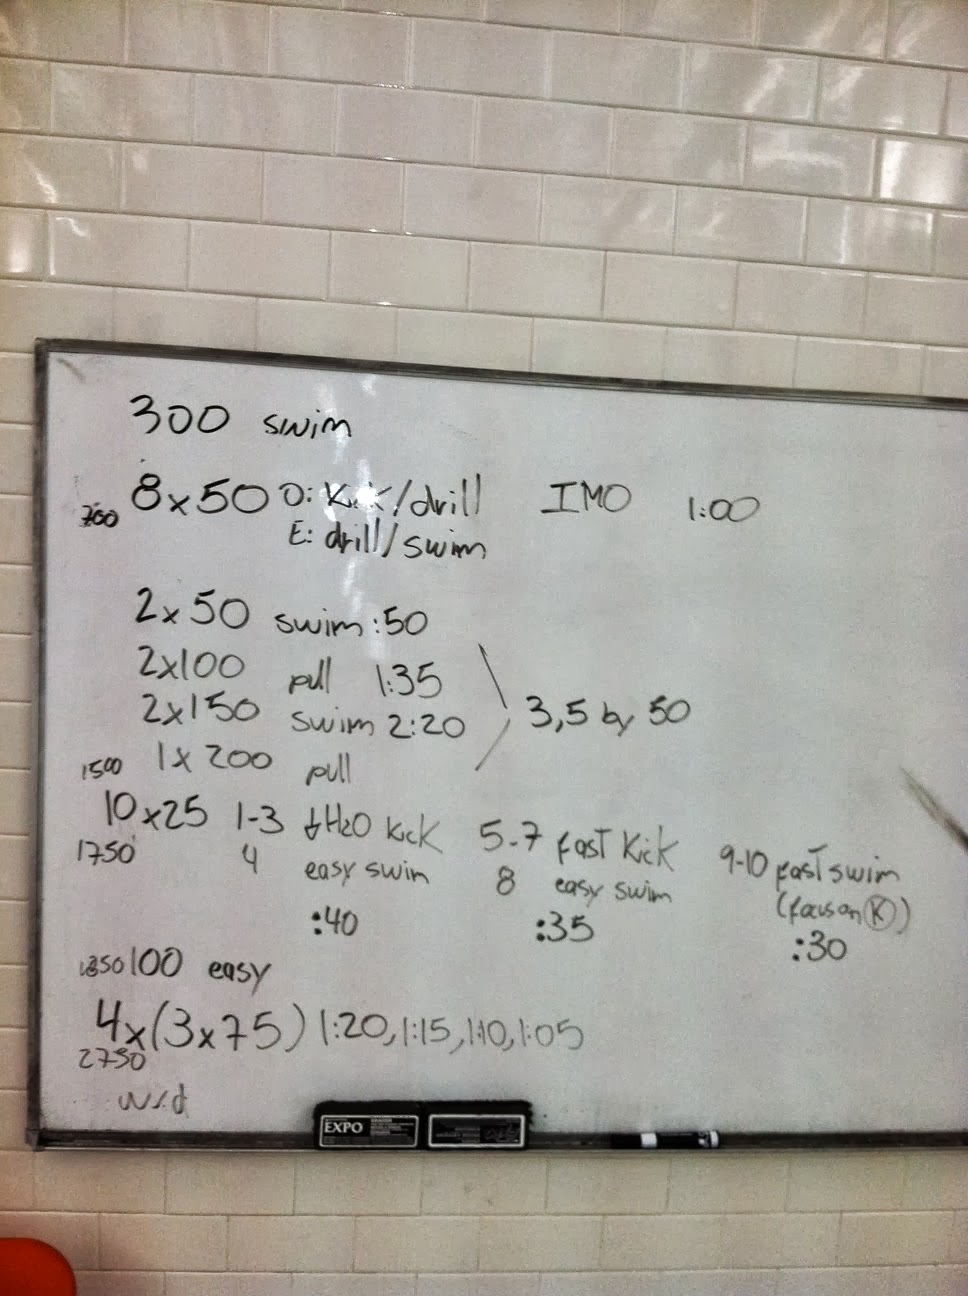 300 swim
700 8x50 O: Kick/drill IMO 1:00
E: drill/swim
2x50 swim :50
2x100 pull 1:35
2x150 swim 2:20 3,5 by 50
1500 1x200 pull
10x25 1-3 ↓H2O Kick 5-7 fast Kick 9-10 fast swim
1750 4 easy swim 8 easy swim (focus on K)
:40 :35 :30
1850 100 easy
4x(3x75) 1:20, 1:15, 1:10, 1:05
2750
w/d
EXPO